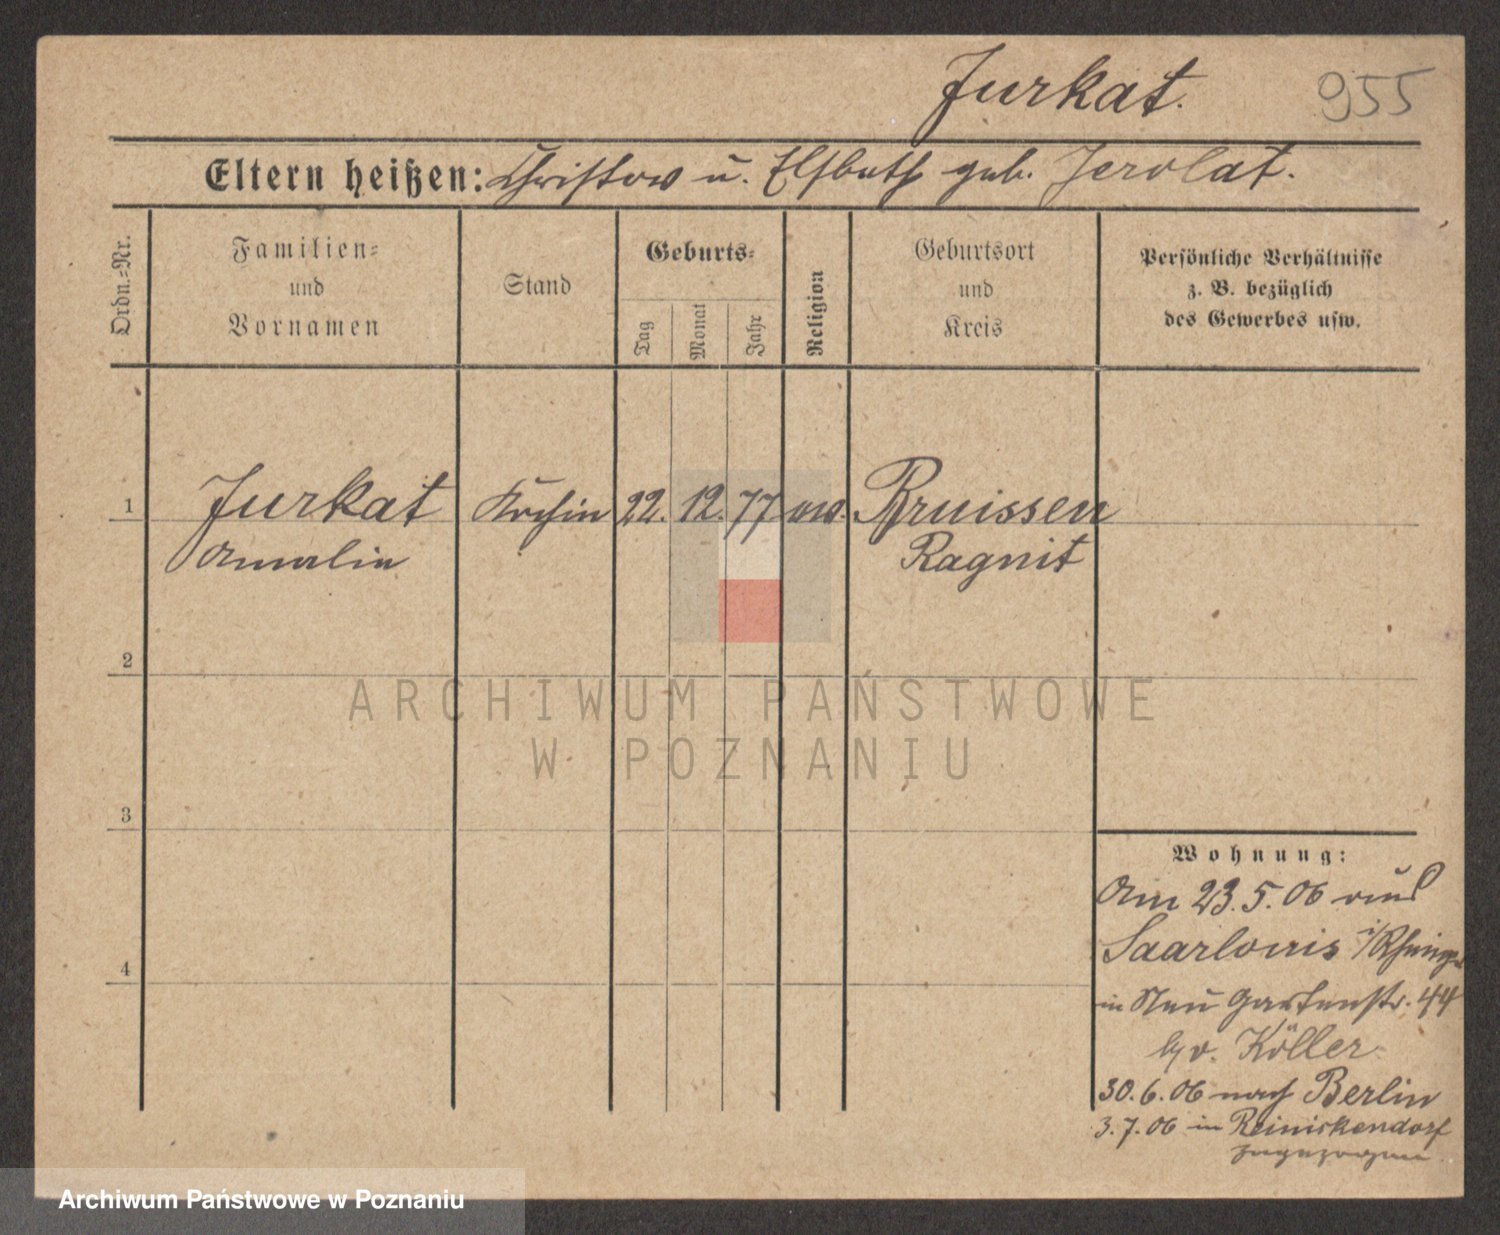 Jurkat.
955
Eltern heißen: Christow u. Elsbeth geb. Jerolat.
Ordn.-Nr.
Familien-
und
Vornamen
Stand
Geburts-
Tag
Monat
Jahr
Religion
Geburtsort
und
Kreis
Persönliche Verhältnisse
z. B. bezüglich
des Gewerbes usw.
1 Jurkat Köchin 22. 12. 77 ev. Bruissen
Amalie Ragnit
2
3
4
Wohnung:
Am 23.5.06 aus
Saarlouis
in Neu Gartenstr. 44
b/ v. Köller
30.6.06 nach Berlin
3.7.06 in Reinickendorf
zugezogen
ARCHIWUM PAŃSTWOWE
W POZNANIU
Archiwum Państwowe w Poznaniu